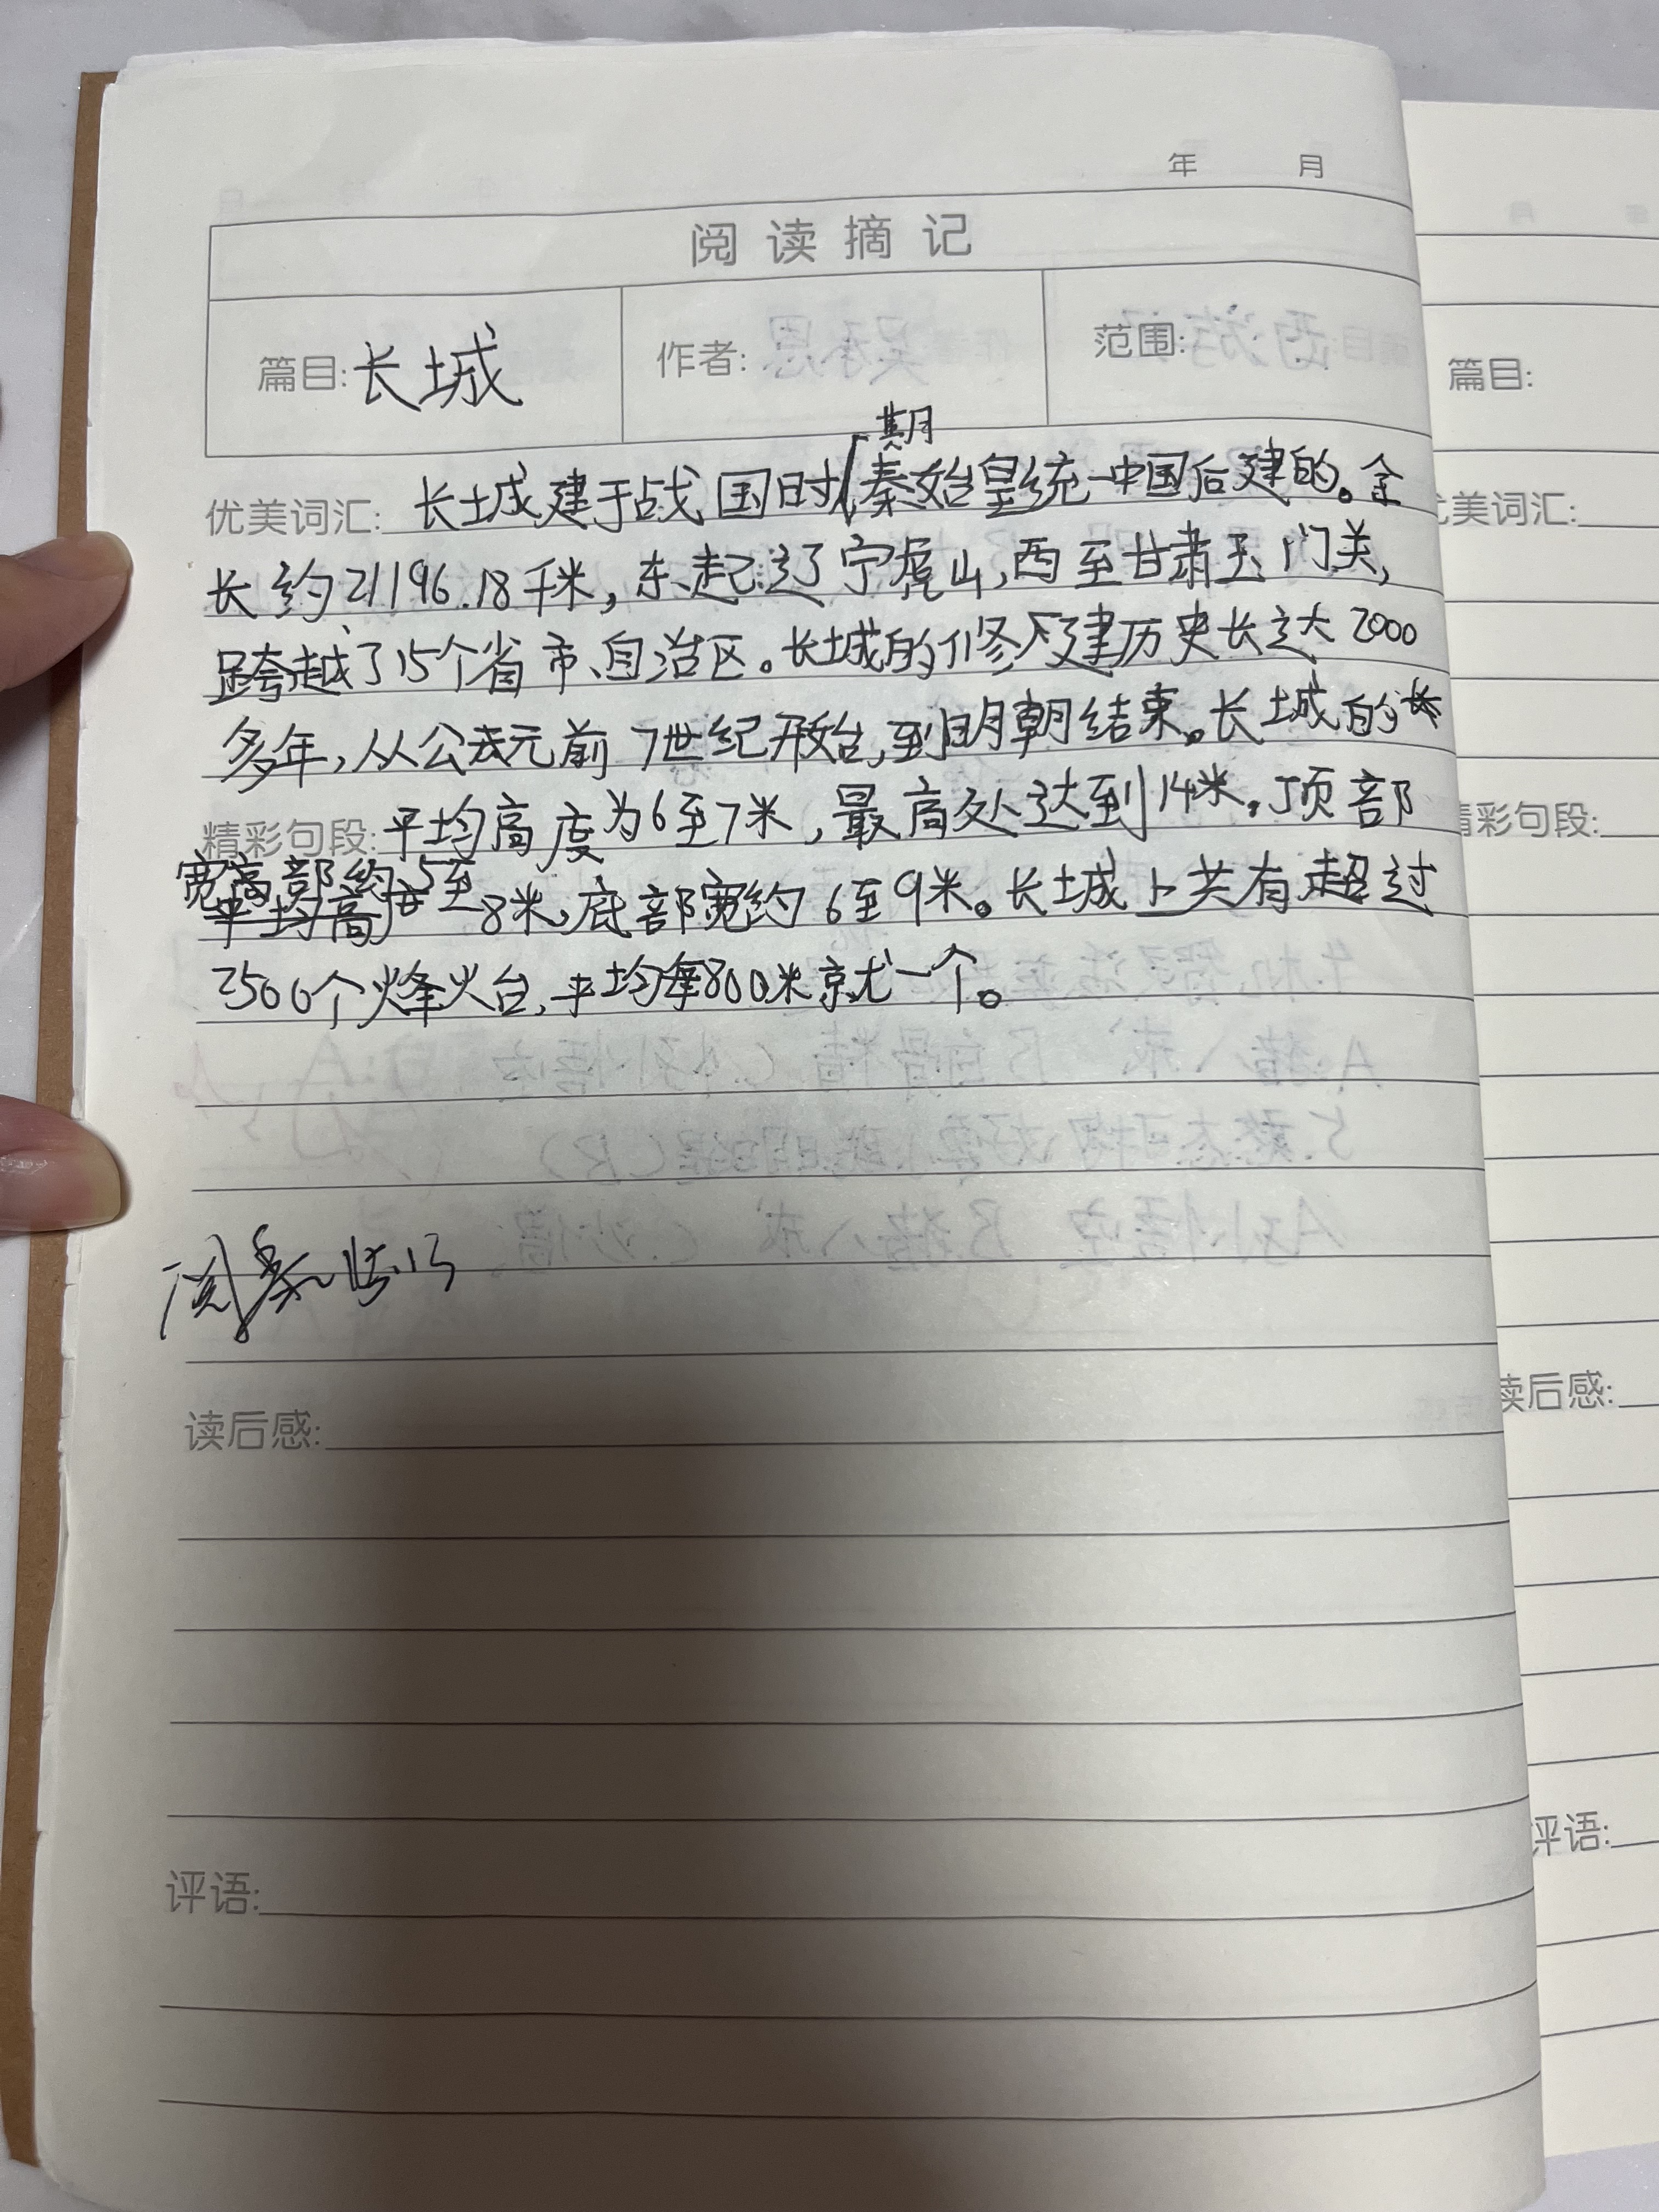 年 月
阅读摘记
篇目:长城 作者: 范围:
期
优美词汇: 长城建于战国时秦始皇统一中国后建的。全
长约21196.18千米,东起辽宁虎山,西至甘肃玉门关,
跨越了15个省、市、自治区。长城的修建历史长达2000
多年,从公元前7世纪开始,到明朝结束。长城的
精彩句段: 平均高度为6至7米,最高处达到14米。顶部
宽部约5至
平均高度8米,底部宽约6至9米。长城上共有超过
2500个烽火台,平均每800米就一个。
读后感:
评语:
篇目:
优美词汇:
精彩句段:
读后感:
评语: